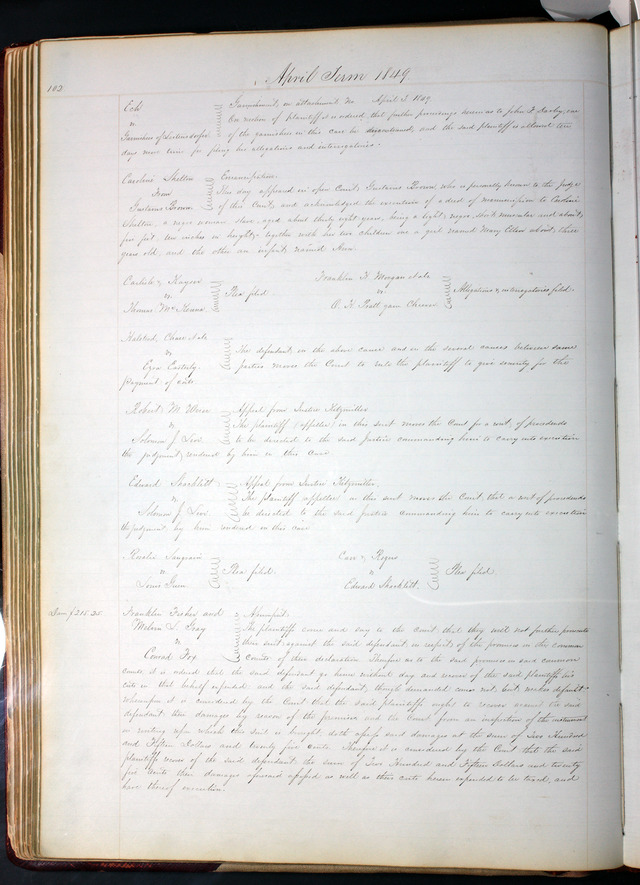 102
April Term 1849
Ech
vs
Garnishees of
Garnishment on attachment No April 3 1849
On motion of plaintiff it is ordered, that further proceedings herein as to John F. Darby, one
of the garnishees in this case be discontinued, and the said plaintiff is allowed ten
days more time for filing his allegations and interrogatories.
Caroline Shelton
From
Gustavus Brown
Emancipation
This day appeared in open Court, Gustavus Brown, who is personally known to the Judges
of this Court, and acknowledged the execution of a deed of emancipation to Caroline
Shelton, a negro woman, slave, aged about thirty eight years, being a light negro, stout muscular and about
five feet, two inches in height; together with her two children one a girl named Mary Ellen about three
years old, and the other an infant, named Ann
Carlisle & Kayser
vs
Thomas McKenna
Plea filed
Franklin H. Morgan et als
vs
O. H. Platt garn Cheever
Allegations & interrogatories filed
Halsted, Chace et als
vs
Ezra Easterly
The defendant, in the above cause and in the several causes between same
parties moves the Court to rule the plaintiff to give security for the
payment of costs
Robert M. Wence
vs
Solomon J. Levi
Appeal from Justice Kretzmiller
The plaintiff (appellee) in this suit moves the Court for a writ of procedendo
to be directed to the said Justice commanding him to carry into execution
the judgment, rendered by him in this case
Edward Shacklitt
vs
Solomon J. Levi
Appeal from Justice Kretzmiller
The plaintiff appellee in this suit moves the Court, that a writ of procedendo
be directed to the said Justice commanding him to carry into execution
the judgment by him rendered in this case
Rosalie Saugrain
vs
Louis Gum
Plea filed
Carr &
vs
Edward Shacklitt
Plea filed
Dam $215.25
Franklin Fisher and
Melvin L. Gray
vs
Conrad Fox
Assumpsit
The plaintiffs come and say to the Court that they will not further prosecute
their suit, against the said defendant, in respect of the promises in the common
counts of their declaration. Therefore as to the said promises in said common
counts it is ordered that the said defendant go hence without day and recover of the said plaintiffs his
costs in that behalf expended; and the said defendant, though demanded comes not, but makes default.
Wherefore it is considered by the Court that the said plaintiffs ought to recover against the said
defendant their damages by reason of the premises and the Court from an inspection of the instrument
in writing upon which this suit is brought, doth assess said damages at the sum of Two Hundred
and Fifteen Dollars and twenty five cents. Therefore it is considered by the Court that the said
plaintiffs recover of the said defendant, the sum of Two Hundred and Fifteen Dollars and twenty
five cents their damages aforesaid assessed as well as their costs herein expended to be taxed, and
have thereof execution.